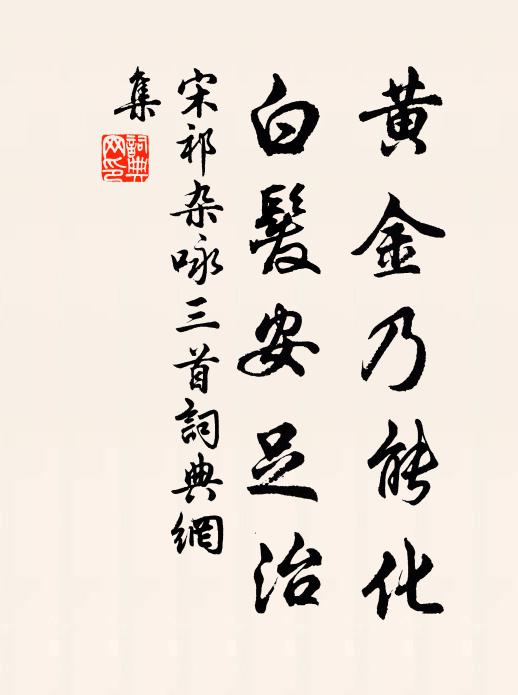 黃金乃能化
白髮安足治
宋祁杂咏三首詞典網
集
詞典
网印